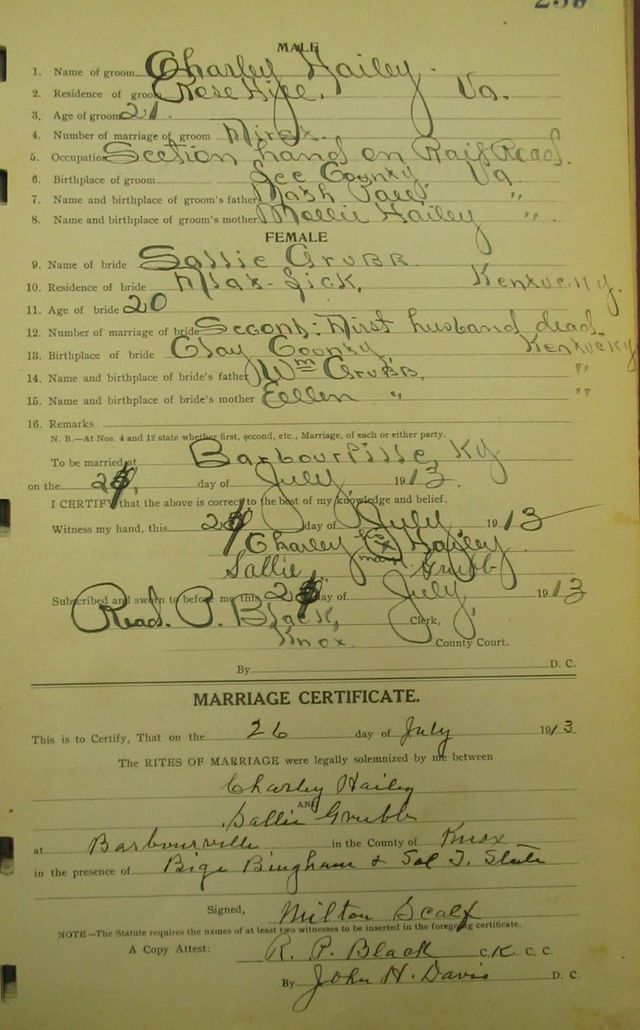 MALE
1. Name of groom Charley Hailey.
2. Residence of groom Rose Hill, Va.
3. Age of groom 21.
4. Number of marriage of groom First.
5. Occupation Section hand on Rail Road.
6. Birthplace of groom Lee County, Va.
7. Name and birthplace of groom's father Nash "
8. Name and birthplace of groom's mother Mollie Hailey "
FEMALE
9. Name of bride Sallie Grubb
10. Residence of bride Flat-Lick, Kentucky.
11. Age of bride 20
12. Number of marriage of bride Second: First husband dead.
13. Birthplace of bride Clay County, Kentucky
14. Name and birthplace of bride's father Wm Grubb, "
15. Name and birthplace of bride's mother Ellen " "
16. Remarks
N. B.—At Nos. 4 and 12 state whether first, second, etc., Marriage, of each or either party.
To be married at Barbourville, Ky
on the day of July 1913.
I CERTIFY that the above is correct to the best of my knowledge and belief.
Witness my hand, this day of July 1913
Charley his X mark Hailey.
Sallie Grubb
Subscribed and sworn to before me this day of July, 1913
Read. P. Black, Clerk,
Knox County Court.
By D. C.
MARRIAGE CERTIFICATE.
This is to Certify, That on the 26 day of July 1913
The RITES OF MARRIAGE were legally solemnized by me between
Charley Hailey
AND
Sallie Grubb
at Barbourville in the County of Knox
in the presence of Bige Bingham & Sol T. Slate
Signed, Milton Scalf
NOTE—The Statute requires the names of at least two witnesses to be inserted in the foregoing certificate.
A Copy Attest: R. P. Black C.K. C. C.
By John H. Davis D. C.